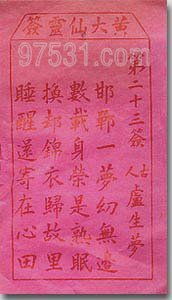 黃大仙靈簽
97531.com
第二十三簽 古人 盧生夢
邯鄲一夢幻無邊
數載身榮是熟眠
換却錦衣歸故里
睡醒還寄在心田